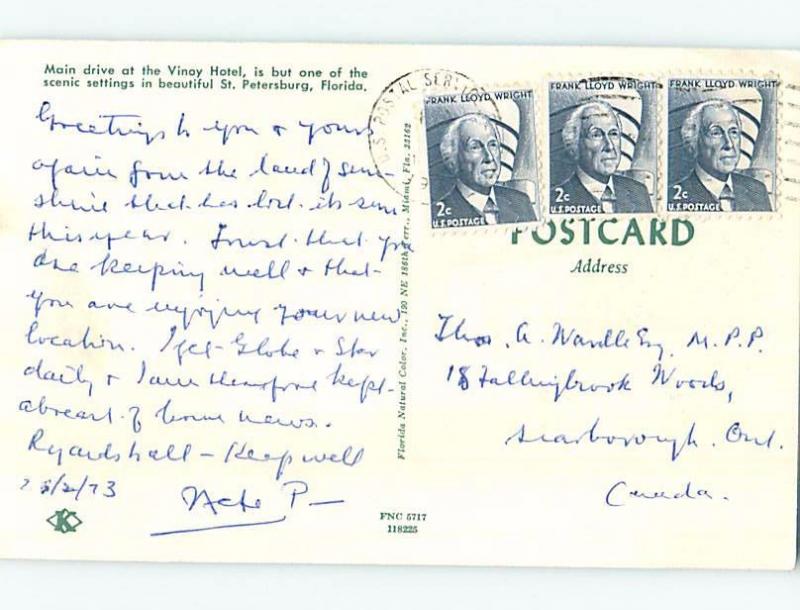 Main drive at the Vinoy Hotel, is but one of the
scenic settings in beautiful St. Petersburg, Florida.
Greetings to you & yours
again from the land of sun-
shine that has lost its sun
this year. Trust that you
are keeping well & that
you are enjoying your new
location. I get Globe & Star
daily & I am therefore kept
abreast of home news.
Rgards to all – Keep well
/2/73
P –
K
FNC 5717
118225
Florida Natural Color, Inc., 190 NE 186th Terr., Miami, Fla. 33162
U.S. POSTAL SERVICE
FRANK LLOYD WRIGHT
2c
U.S. POSTAGE
FRANK LLOYD WRIGHT
2c
U.S. POSTAGE
FRANK LLOYD WRIGHT
2c
U.S. POSTAGE
POSTCARD
Address
Thos. A. Wardle Esq, M.P.P.
18 Fallingbrook Woods,
Scarborough. Ont.
Canada.